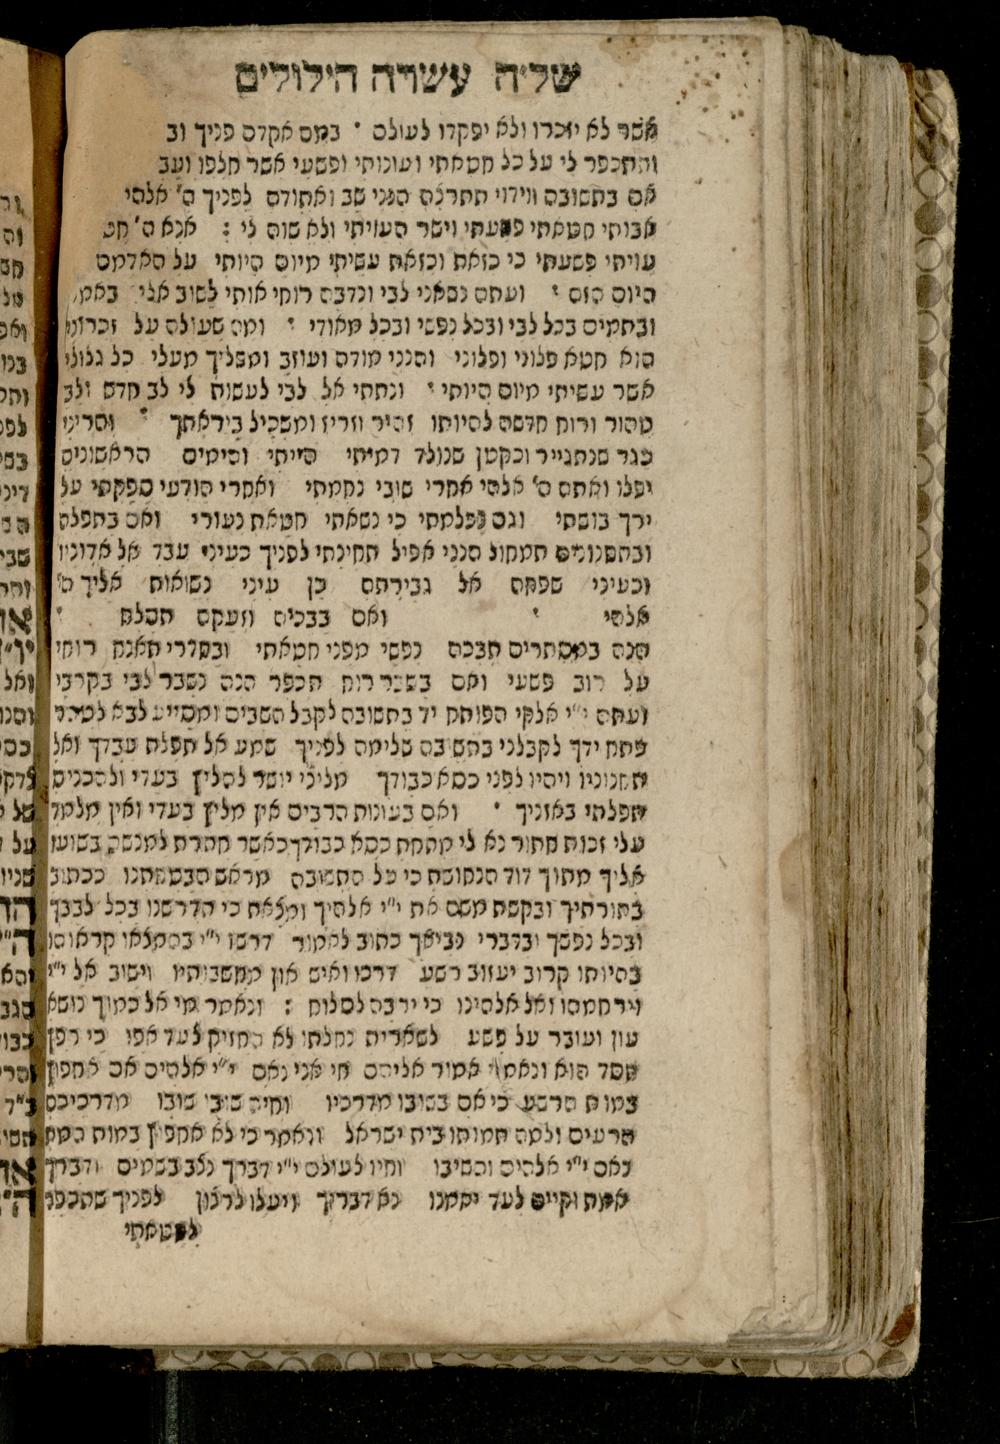 של״ה עשרה הילולים
אשר לא יזכרו ולא יפקדו לעולם · במה אקדם פניך וב
והתכפר לי על כל חטאתי ועונותי ופשעי אשר חלפו ועב
אם בתשובה ווידוי תתרצה הנני שב ואתודה לפניך ה' אלהי
אבותי חטאתי פשעתי וישר העויתי ולא שוה לי : אנא ה' חט
עויתי פשעתי כי כזאת וכזאת עשיתי מיום היותי על האדמה
היום הזה · ועתה נשאני לבי ונדבה רוחי אותי לשוב אלי באמ
ובתמים בכל לבי ובכל נפשי ובכל מאודי · ומה שעולה על זכרוני
הוא חטא פלוני ופלוני והנני מודה ועוזב ומשליך מעלי כל גלולי
אשר עשיתי מיום היותי · ונתתי אל לבי לעשות לי לב חדש ולב
טהור ורוח חדשה להיותו זהיר וזריז ומשכיל ביראתך · והריני
כגר שנתגייר וכקטן שנולד דמיתי הייתי והימים הראשונים
יפלו ואתה ה' אלהי אחרי שובי נחמתי ואחרי הודעי ספקתי על
ירך בושתי וגם נכלמתי כי נשאתי חטאת נעורי ואם בתפלה
ובתחנונים תמחול הנני אפיל תחינתי לפניך כעיני עבד אל אדוניו
וכעיני שפחה אל גבירתה כן עיני נשואות אליך ה'
אלהי · ואם בבכיה וזעקה תסלח ·
הנה במסתרים תבכה נפשי מפני חטאתי ובחדרי תאנח רוחי
על רוב פשעי ואם בשבר רוח תכפר הנה נשבר לבי בקרבי
ועתה י״י אלקי הפותח יד בתשובה לקבל השבים ומסייע לבא לטהר
פתח ידך לקבלני בתשובה שלימה לפניך שמע אל תפלת עבדך ואל
תחנוניו ויהיו לפני כסא כבודך מליצי יושר להליץ בעדי ולהכניס
תפלתי באזניך · ואם בעונות הרבים אין מליץ בעדי ואין מלמד
עלי זכות חתור נא לי מתחת כסא כבודך כאשר חתרת למנשה בשועו
אליך מתוך דוד הנחושת כי על התשובה מראש הבטחתנו ככתוב
בתורתיך ובקשת משם את י״י אלהיך ומצאת כי תדרשנו בכל לבבך
ובכל נפשך ובדברי נביאך כתוב לאמור דרשו י״י בהמצאו קראוהו
בהיותו קרוב יעזוב רשע דרכו ואיש און מחשבותיו וישוב אל י״י
וירחמהו ואל אלהינו כי ירבה לסלוח : ונאמר מי אל כמוך נושא
עון ועובר על פשע לשארית נחלתו לא החזיק לעד אפו כי חפץ
חסד הוא ונאמר אמור אליהם חי אני נאם י״י אלהים אם אחפוץ
במות הרשע כי אם בשובו מדרכיו וחיה שובו שובו מדרכיכם
הרעים ולמה תמותו בית ישראל ונאמר כי לא אחפוץ במות המת
נאם י״י אלהים והשיבו וחיו לעולם י״י דברך נצב בשמים ודברך
אמת וקיים לעד יאמנו נא דבריך ויעלו לרצון לפניך שתכפר
לחטאתי